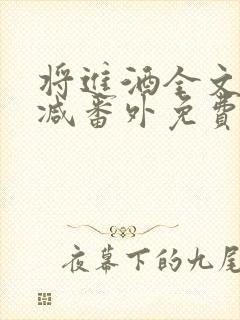 将進酒全文
减番外免費
夜幕下的九尾